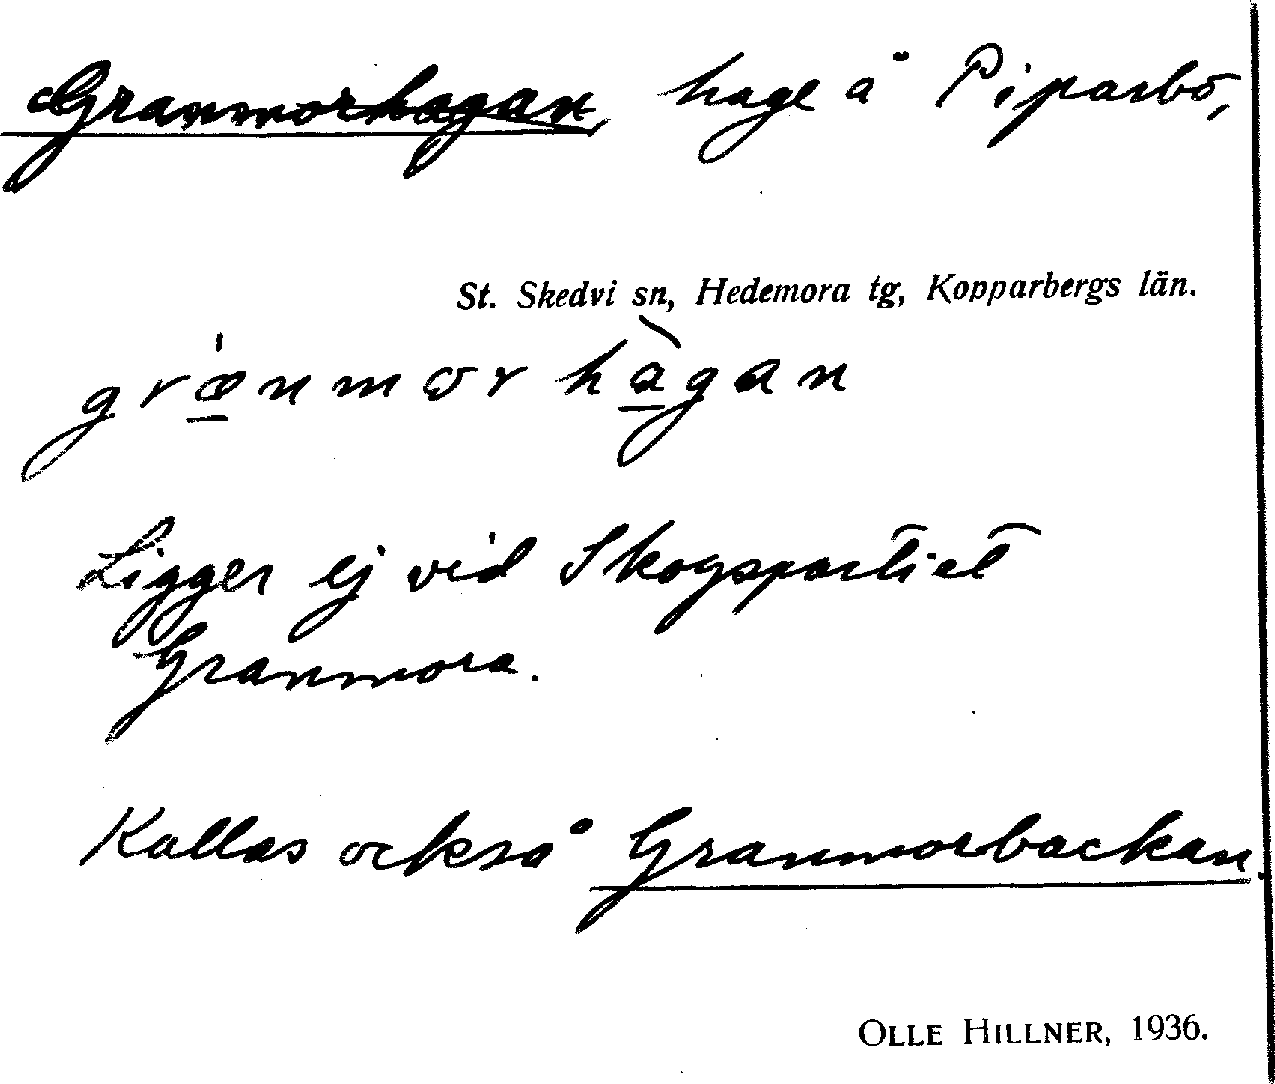 Granmorhagan, hage å Piparbo,
St. Skedvi sn, Hedemora tg, Kopparbergs län.
grænmor hàgan
Ligger ej vid Skogspartiet
Granmora.
Kallas också Granmorbackan.
OLLE HILLNER, 1936.